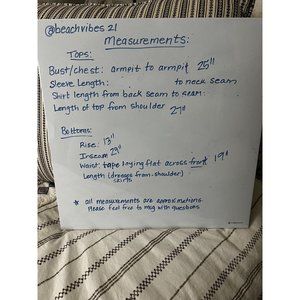 @beachvibes21
Measurements:
Tops:
Bust/chest: armpit to armpit 25"
Sleeve Length: to neck seam
Shirt length from back seam to
Length of top from shoulder 27"
Bottoms:
Rise: 13"
Inseam 29"
Waist: tape laying flat across front 19"
Length (dresses from shoulder)
skirts
* all measurements are approximations
Please feel free to msg with questions